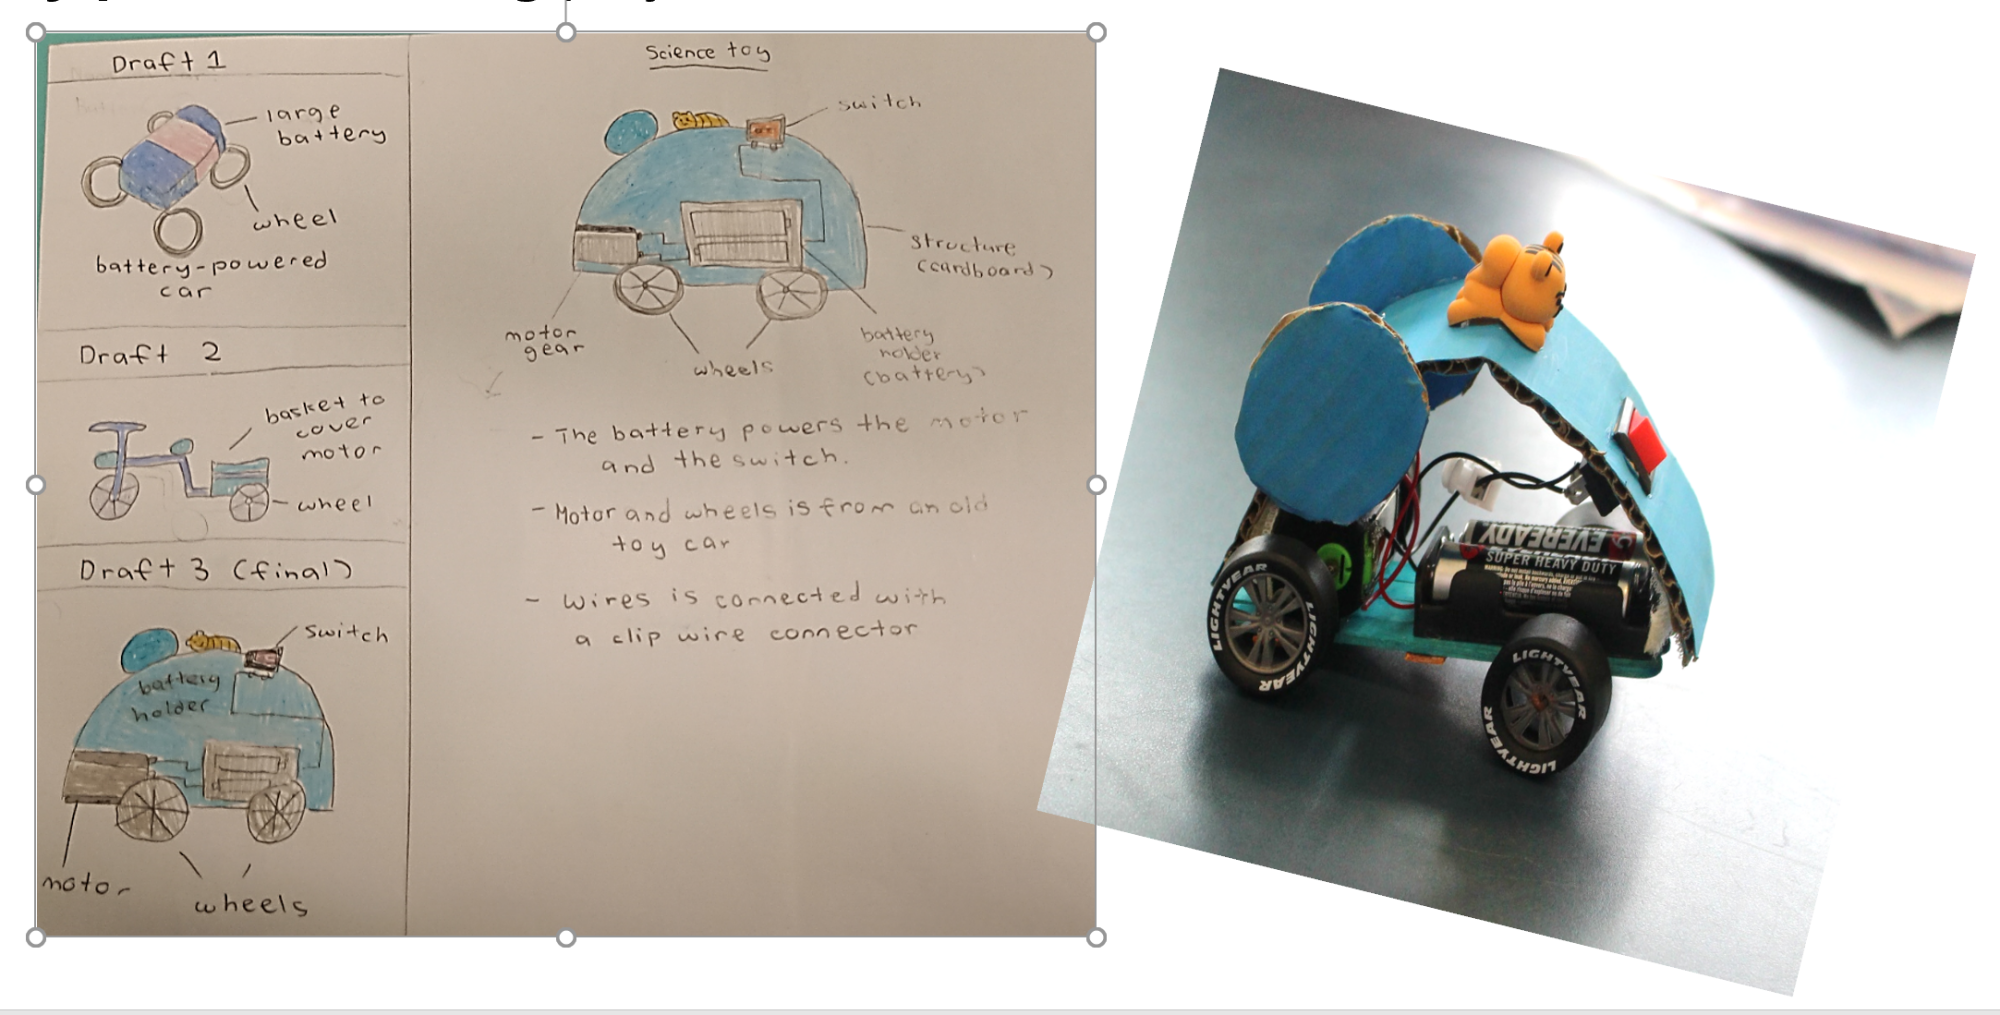 Draft 1
large
battery
wheel
battery-powered
car
Draft 2
basket to
cover
motor
wheel
Draft 3 (final)
switch
battery
holder
motor
wheels
Science toy
switch
structure
(cardboard)
motor
gear
wheels
battery
holder
(battery)
- The battery powers the motor
and the switch.
- Motor and wheels is from an old
toy car
- Wires is connected with
a clip wire connector
EVEREADY
SUPER HEAVY DUTY
LIGHTYEAR
LIGHTYEAR
LIGHTYEAR
LIGHTYEAR
LIGHTYEAR
LIGHTYEAR